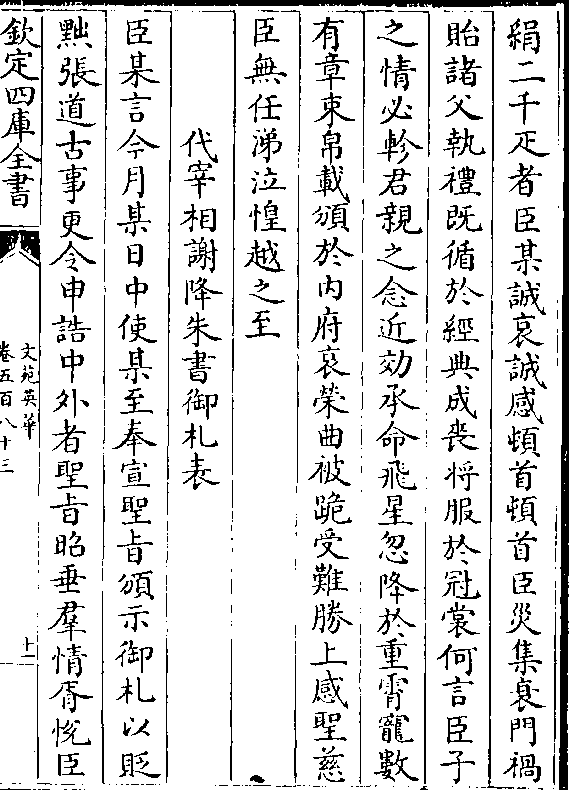 絹二千疋者臣某誠哀誠感頓首頓首臣災集衰門禍
貽諸父執禮既循於經典成喪将服於冠裳何言臣子
之情必軫君親之念近効承命飛星忽降於重霄寵數
有章束帛載頒於内府哀榮曲被跪受難勝上感聖慈
臣無任涕泣惶越之至
代宰相謝降朱書御札表
臣某言今月某日中使某至奉宣聖旨頒示御札以貶
黜張道古事更令申誥中外者聖旨昭垂羣情胥悅臣
欽定四庫全書
文苑英華
卷五百八十三
十一